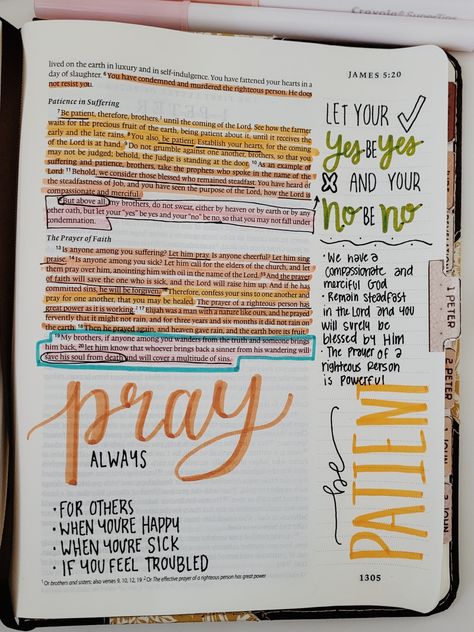 Crayola SuperTips
JAMES 5:20
lived on the earth in luxury and in self-indulgence. You have fattened your hearts in a
day of slaughter. 6 You have condemned and murdered the righteous person. He does
not resist you.
Patience in Suffering
7 Be patient, therefore, brothers, 1 until the coming of the Lord. See how the farmer
waits for the precious fruit of the earth, being patient about it, until it receives the
early and the late rains. 8 You also, be patient. Establish your hearts, for the coming
of the Lord is at hand. 9 Do not grumble against one another, brothers, so that you
may not be judged; behold, the Judge is standing at the door. 10 As an example of
suffering and patience, brothers, take the prophets who spoke in the name of the
Lord. 11 Behold, we consider those blessed who remained steadfast. You have heard of
the steadfastness of Job, and you have seen the purpose of the Lord, how the Lord is
compassionate and merciful.
12 But above all, my brothers, do not swear, either by heaven or by earth or by any
other oath, but let your "yes" be yes and your "no" be no, so that you may not fall under
condemnation.
The Prayer of Faith
13 Is anyone among you suffering? Let him pray. Is anyone cheerful? Let him sing
praise. 14 Is anyone among you sick? Let him call for the elders of the church, and let
them pray over him, anointing him with oil in the name of the Lord. 15 And the prayer
of faith will save the one who is sick, and the Lord will raise him up. And if he has
committed sins, he will be forgiven. 16 Therefore, confess your sins to one another and
pray for one another, that you may be healed. The prayer of a righteous person has
great power as it is working. 2 17 Elijah was a man with a nature like ours, and he prayed
fervently that it might not rain, and for three years and six months it did not rain on
the earth. 18 Then he prayed again, and heaven gave rain, and the earth bore its fruit.
19 My brothers, if anyone among you wanders from the truth and someone brings
him back, 20 let him know that whoever brings back a sinner from his wandering will
save his soul from death and will cover a multitude of sins.
LET YOUR
Yes BE Yes
AND YOUR
No BE no
• We have a
compassionate and
merciful God
• Remain steadfast
in the Lord and you
will surely be
blessed by Him
• The prayer of a
righteous person
is powerful
pray
ALWAYS
• FOR OTHERS
• WHEN YOU'RE HAPPY
• WHEN YOU'RE SICK
• IF YOU FEEL TROUBLED
be
PATIENT
1 Or brothers and sisters; also verses 9, 10, 12, 19 2 Or The effective prayer of a righteous person has great power
1305
1 PETER
2 PETER
1 JOHN
2 JOHN